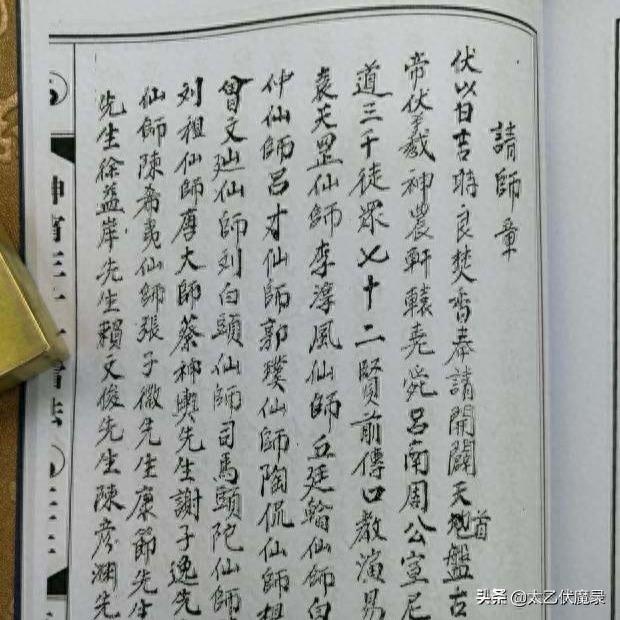 請師章
伏以日吉時良焚香奉請開闢天地盤古首
帝伏羲神農軒轅堯舜呂南周公室尼
道三千徒眾七十二賢前傳口教演易
袁天罡仙師李淳風仙師丘廷翰仙師白
仲仙師呂才仙師郭璞仙師陶侃仙師
曾文辿仙師刘白頭仙師司馬頭陀仙師
刘祖仙師唐大師蔡神輿先生謝子逸先
仙師陳希夷仙師張子微先生康節先生
先生徐益岸先生賴文俊先生陳彥渊先
头条 @太乙伏魔录